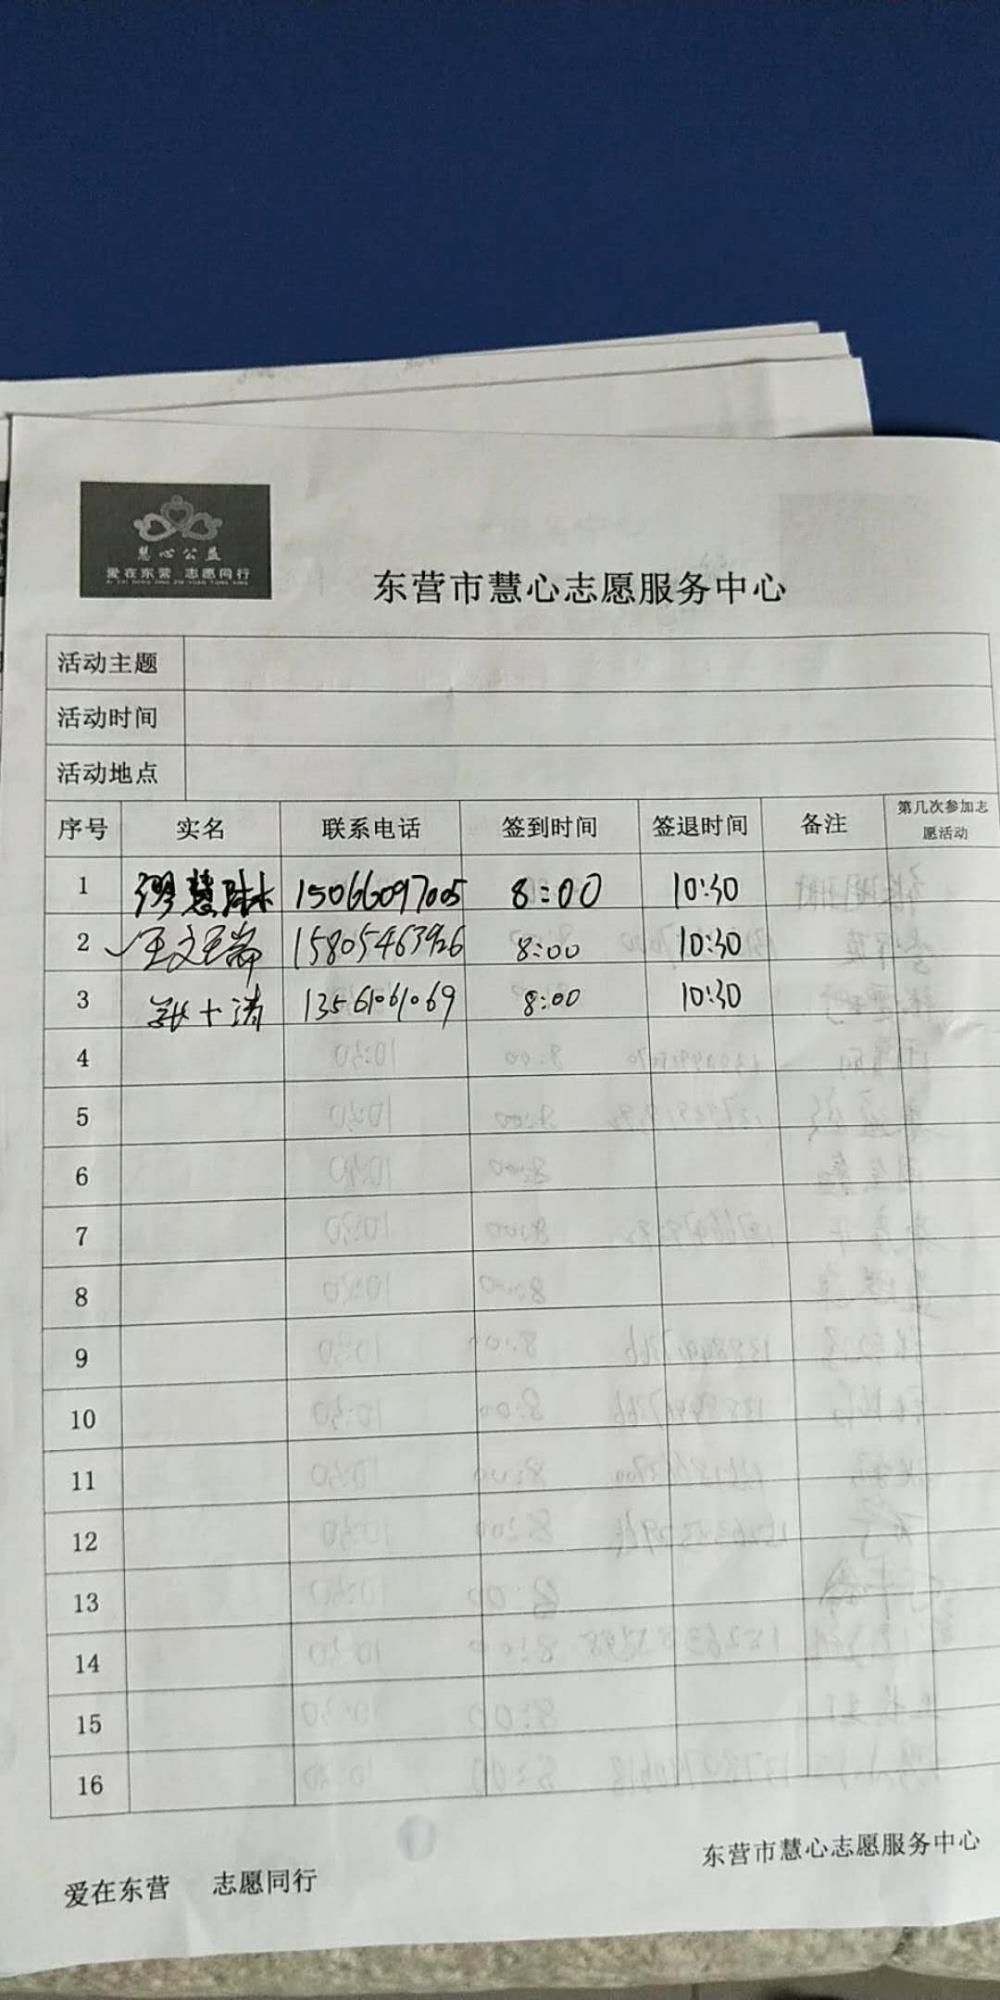 慧心公益
爱在东营 志愿同行
东营市慧心志愿服务中心
活动主题
活动时间
活动地点
序号 实名 联系电话 签到时间 签退时间 备注 第几次参加志愿活动
1 缪慧 15066097005 8:00 10:30
2 王文 15805463926 8:00 10:30
3 13561061069 8:00 10:30
4
5
6
7
8
9
10
11
12
13
14
15
16
东营市慧心志愿服务中心
爱在东营 志愿同行